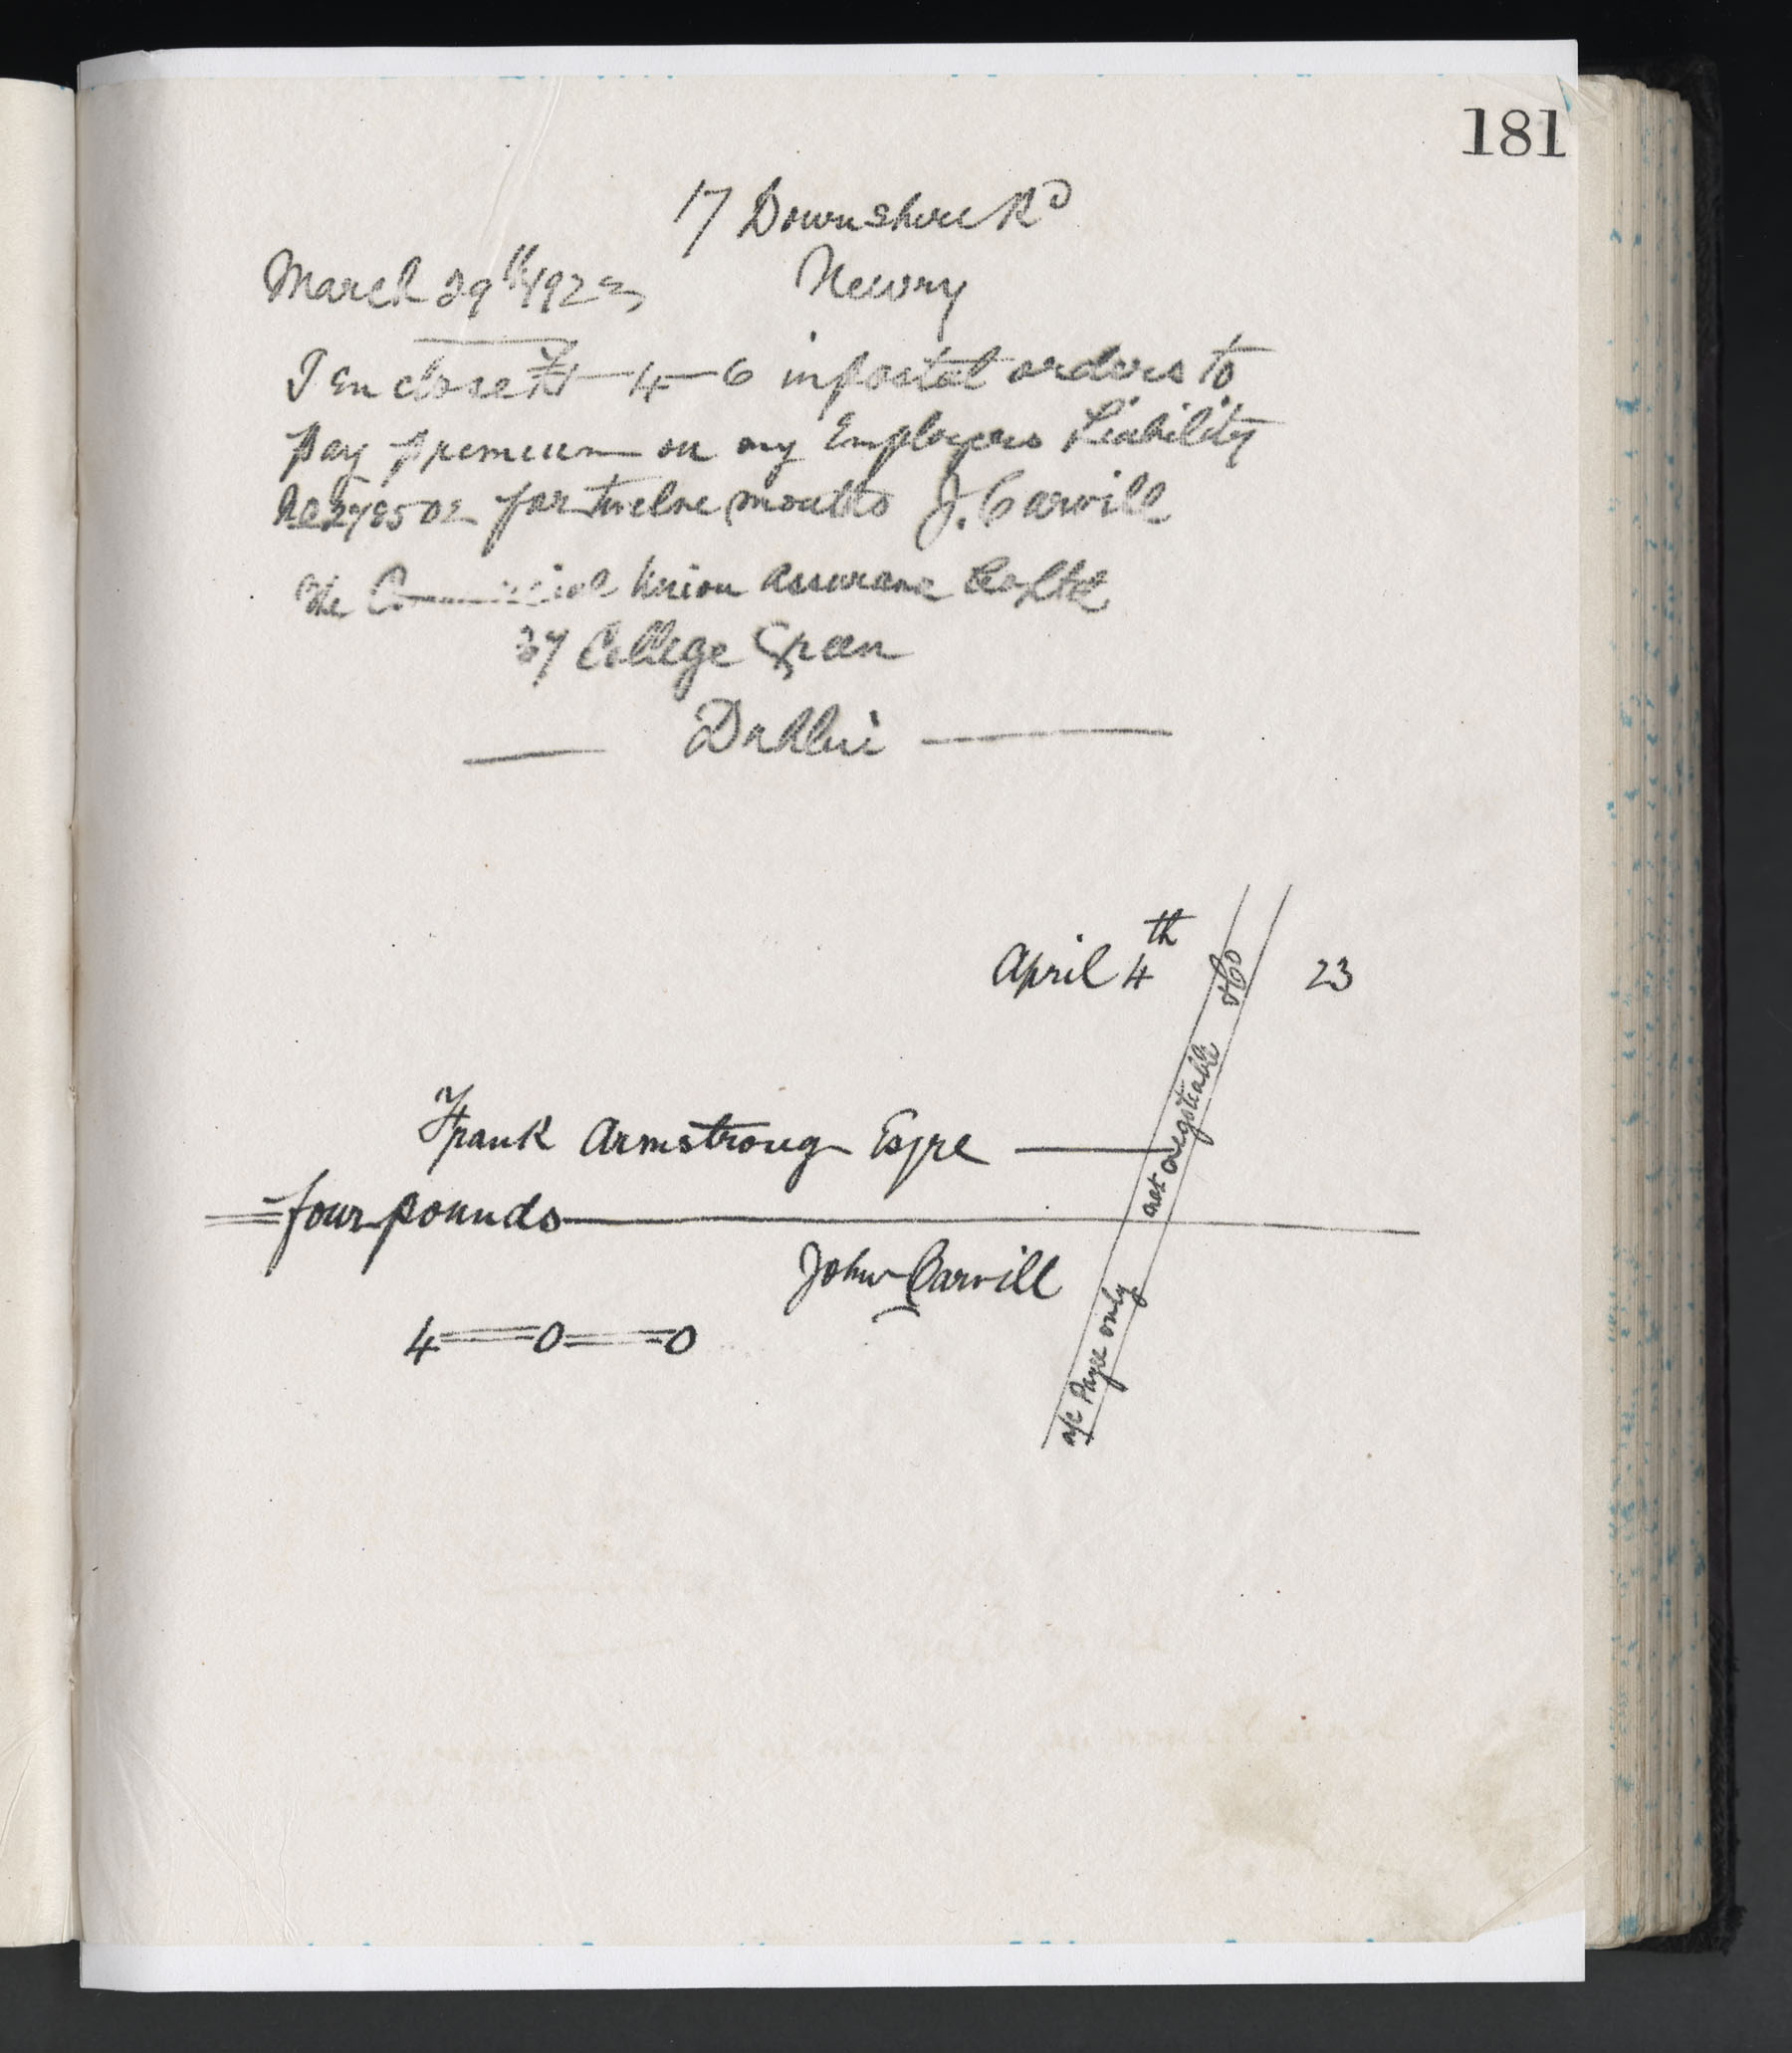 181
17 Downshire Rd
March 29th 1923 Newry
I enclose £1-4-6 in postal orders to
pay premium on my Employers Liability
for twelve months J. Carvill
The Commercial Union Assurance Co Ltd
37 College Green
Dublin
April 4th 23
Frank Armstrong Esqre
four pounds
John Carvill
4=0=0
a/c Payee only not negotiable &Co